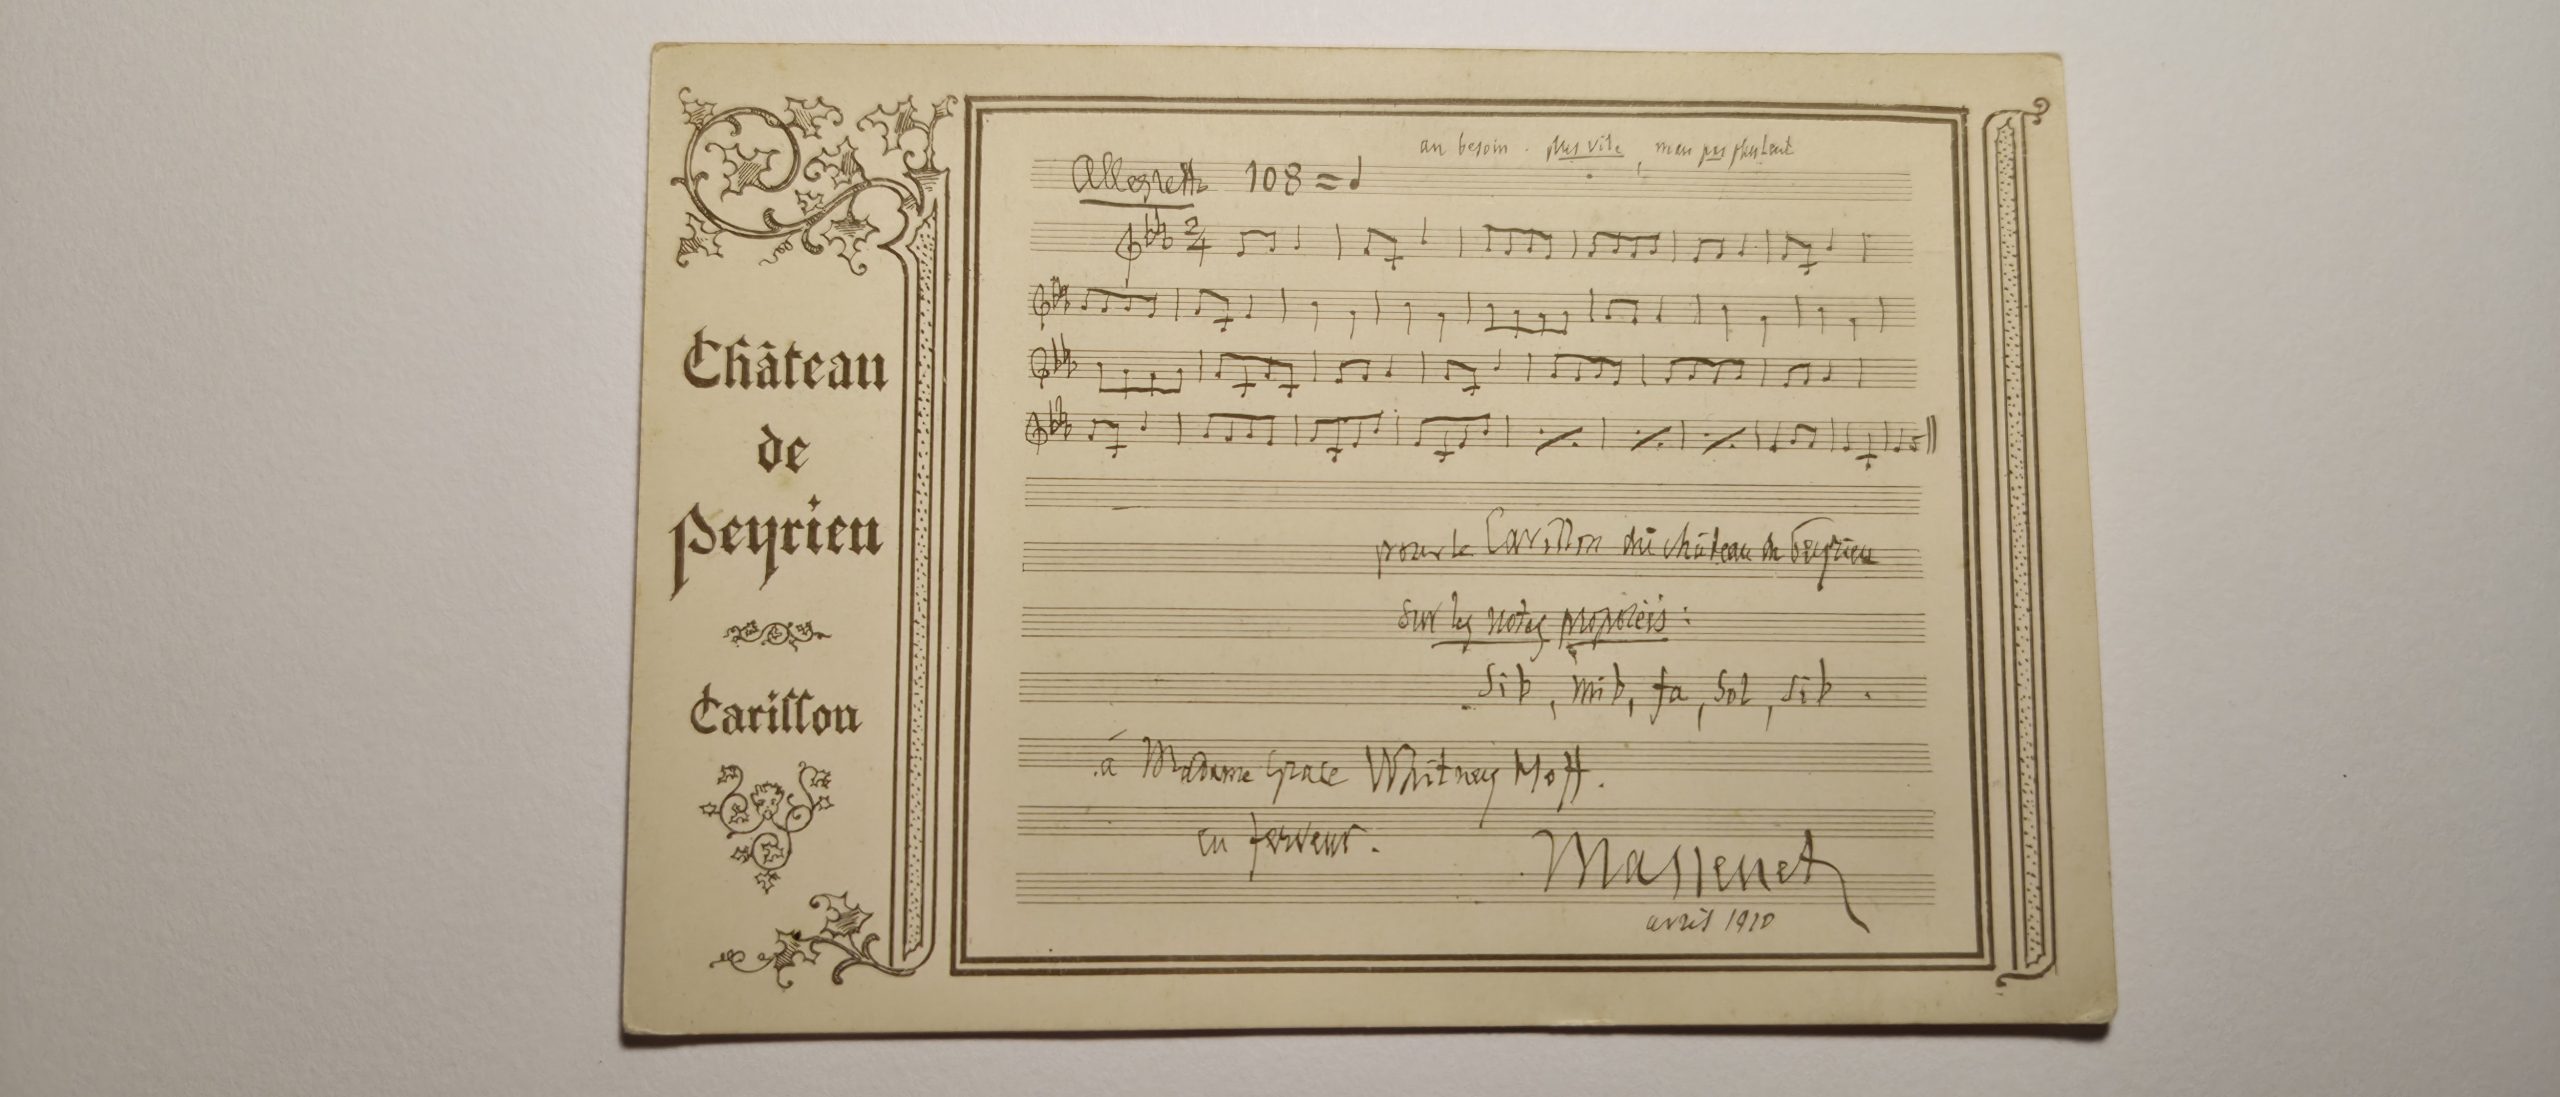 Château
de
Peyrieu
Carillon
au besoin . plus vite, mais pas plus lent
Allegretto 108 =
2
4
pour le Carillon du château de Peyrieu
sur les notes proposées :
si b, mi b, fa, sol, si b .
à Madame Grace Whitney Hoff.
en ferveur.
Massenet
avril 1910